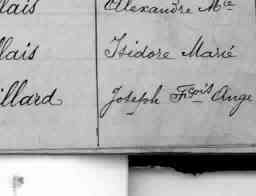 llais Allexandre Mie
llais Isidore Marie
illard Joseph Fçois Ange